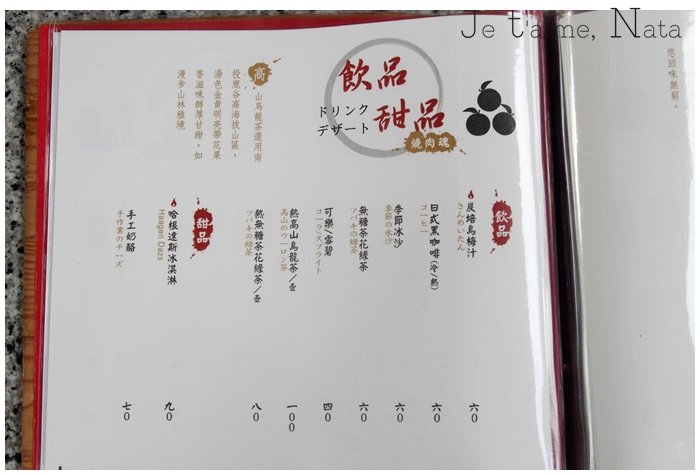 Je t'aime, Nata
您回味無窮。
飲品
甜品
ドリンク
デザート
燒肉魂
高山烏龍茶選用南
投鹿谷高海拔山區，
湯色金黃明亮帶花果
香滋味醇厚甘甜，如
漫步山林雅境
飲品
炭培烏梅汁 六0
さんめいたん
日式黑咖啡(冷/熱) 六0
コーヒー
季節冰沙 六0
季節の氷沙
無糖茶花綠茶 六0
ツバキの緑茶
可樂/雪碧 四0
コーラ/スプライト
熱高山烏龍茶/壺 一00
高山のウーロン茶
熱無糖茶花綠茶/壺 八0
ツバキの緑茶
甜品
哈根達斯冰淇淋 九0
Haagen Dazs
手工奶酪 七0
手作業のチーズ